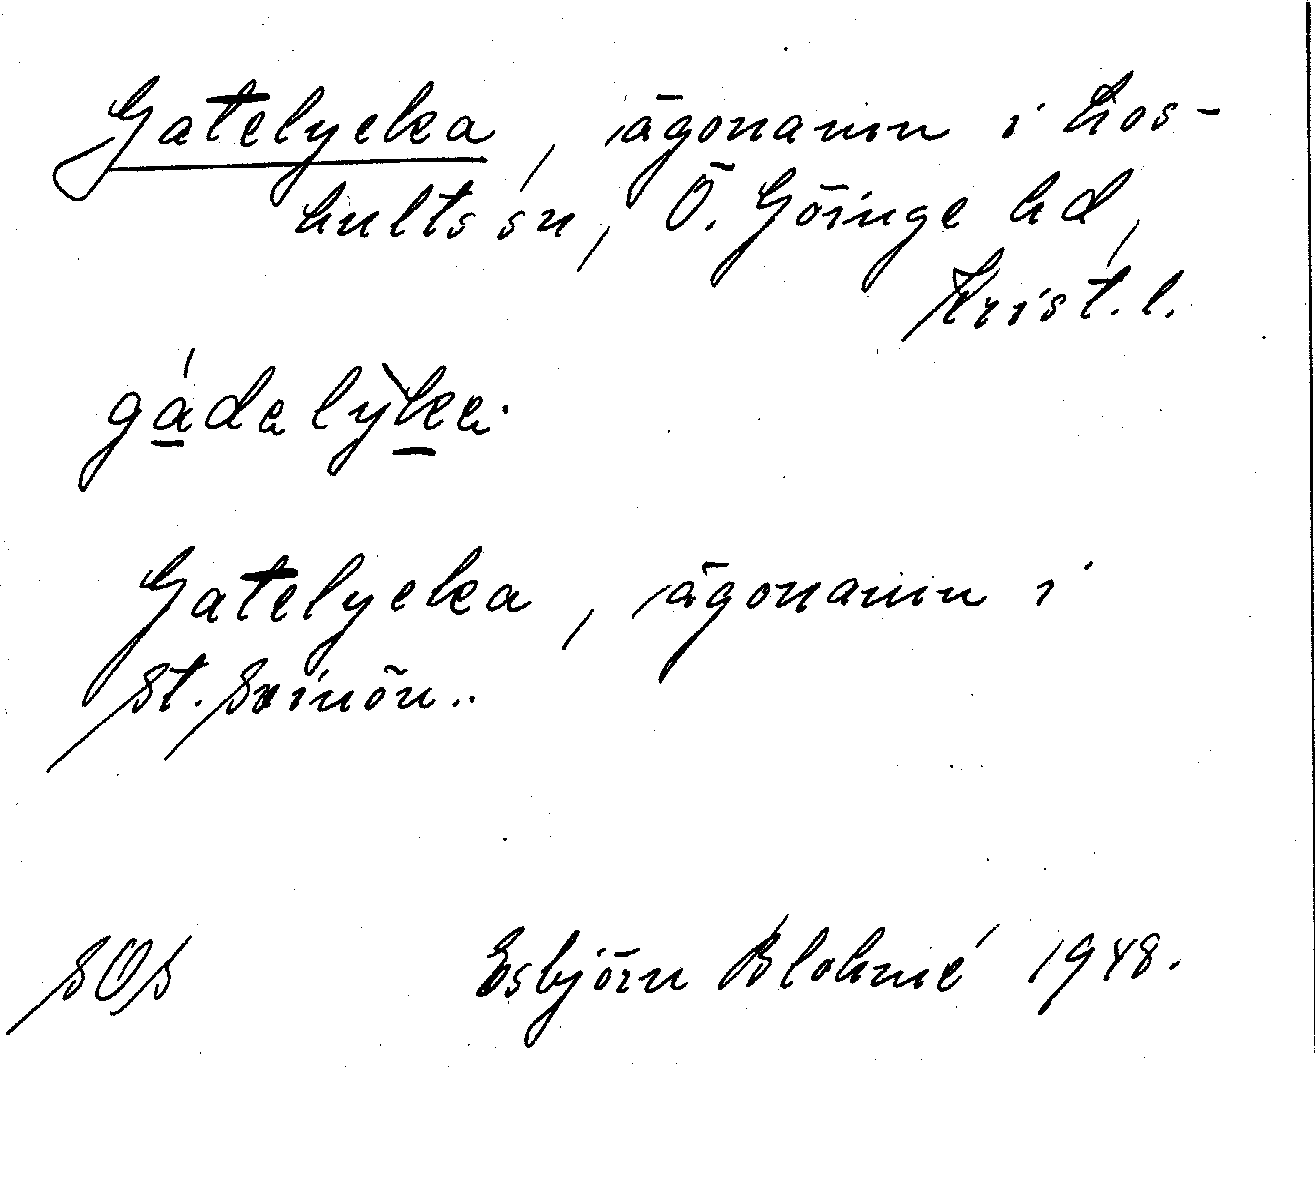 Gatelycka, ägonamn i Los-
hults sn, Ö. Göinge hd,
Krist. l.
gádalỳka.
Gatelycka, ägonamn i
St. Svinön..
SOS Esbjörn Blohmé 1948.